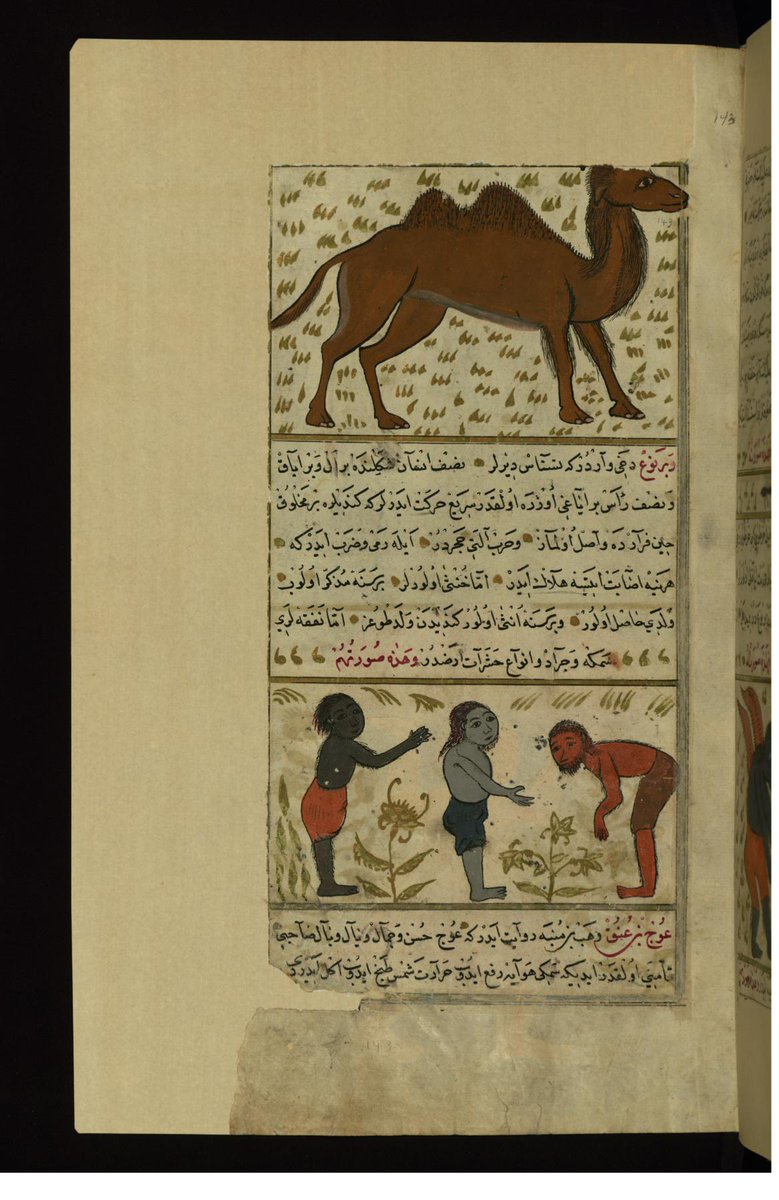 143
143
وبر نوع دخي واردر كه نسناس ديرلر نصف انسان شكلنده بر ال وبر اياق
ونصف رأس بر اياغي اوزره اولقدر سريع حركت ايدرلر كه كنديلره بر مخلوق
حين فرارده واصل اولماز وحرب آلتي حجردر ايله رمى وضرب ايدر كه
هر نيه اصابت ايتسه هلاك ايدر اما خنثى اولورلر بر سنه مذكر اولوب
ولدي حاصل اولور وبر سنه انثى اولور كنديدن ولد طوغر اما نفقه لري
سمكه وجراد وانواع حشرات ارضدر وهذه صورتهم
عوج بن عنق وهب بن منبه روايت ايدر كه عوج حسن وجمال وبال صاحبي
قامتي اولقدر ايديكه سمكي هوايه رفع ايدوب حرارت شمس طبخ ايدوب اكل ايدردي
143